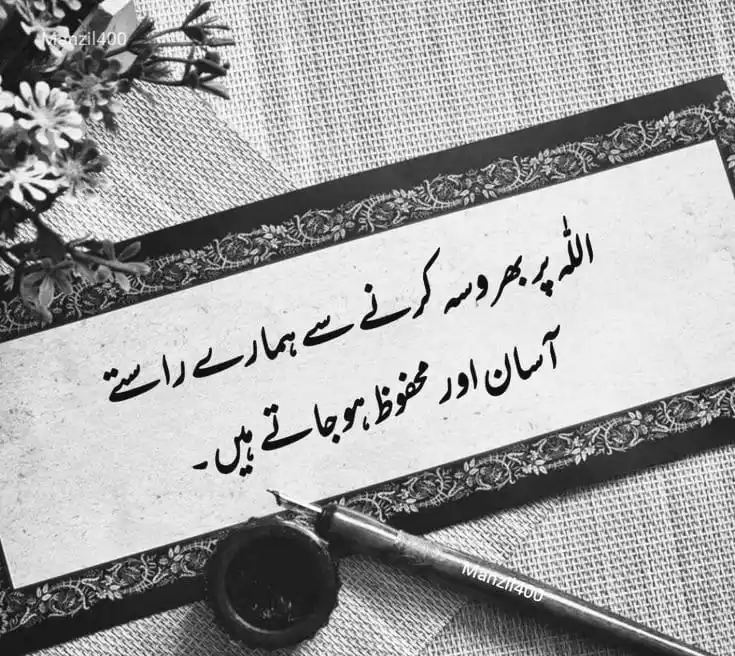 Manzil400
اللہ پر بھروسہ کرنے سے ہمارے راستے
آسان اور محفوظ ہوجاتے ہیں۔
Manzil400